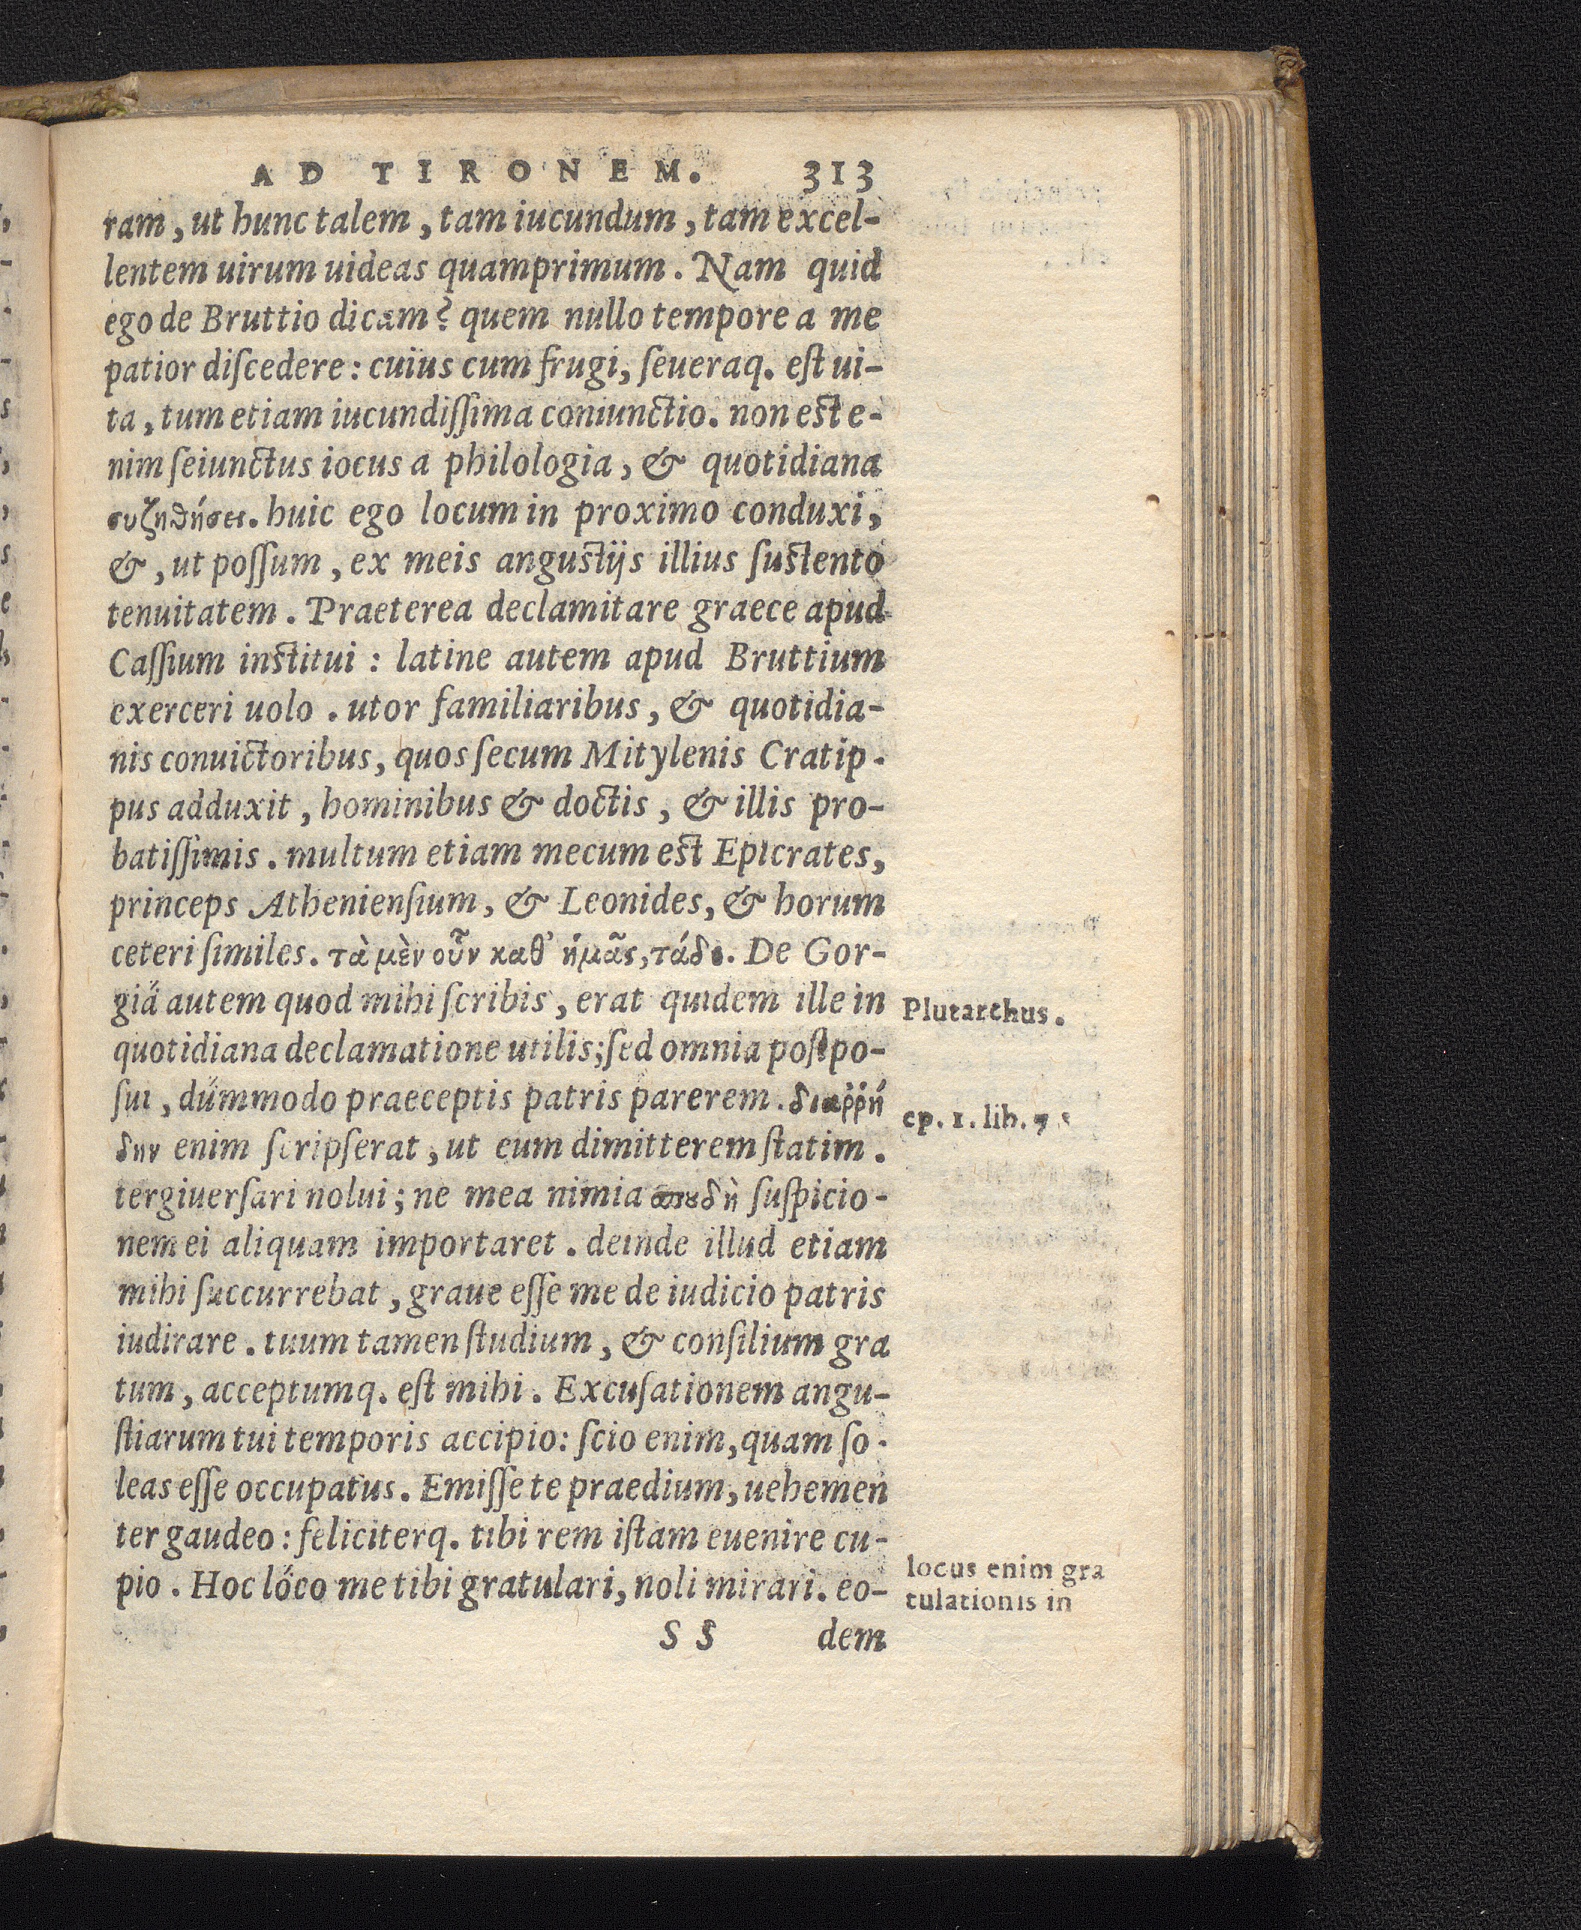 AD TIRONEM. 313
ram, ut hunc talem, tam iucundum, tam excel-
lentem uirum uideas quamprimum. Nam quid
ego de Bruttio dicam? quem nullo tempore a me
patior diſcedere: cuius cum frugi, ſeueraq. eſt ui-
ta, tum etiam iucundiſſima coniunctio. non eſt e-
nim ſeiunctus iocus a philologia, & quotidiana
συζηθήσει. huic ego locum in proximo conduxi,
&, ut poſſum, ex meis anguſtijs illius ſuſtento
tenuitatem. Praeterea declamitare graece apud
Caſſium inſtitui: latine autem apud Bruttium
exerceri uolo. utor familiaribus, & quotidia-
nis conuictoribus, quos ſecum Mitylenis Cratip-
pus adduxit, hominibus & doctis, & illis pro-
batiſſimis. multum etiam mecum eſt Epicrates,
princeps Athenienſium, & Leonides, & horum
ceteri ſimiles. τὰ μὲν οὖν καθ' ἡμᾶς, τάδε. De Gor-
gia autem quod mihi ſcribis, erat quidem ille in
Plutarchus.
quotidiana declamatione utilis; ſed omnia poſtpo-
ſui, dummodo praeceptis patris parerem. διαῤῥή
ep. 1. lib. 7
δην enim ſcripſerat, ut eum dimitterem ſtatim.
tergiuerſari nolui; ne mea nimia σπουδὴ ſuſpicio-
nem ei aliquam importaret. deinde illud etiam
mihi ſuccurrebat, graue eſſe me de iudicio patris
iudirare. tuum tamen ſtudium, & conſilium gra
tum, acceptumq. eſt mihi. Excuſationem angu-
ſtiarum tui temporis accipio: ſcio enim, quam ſo-
leas eſſe occupatus. Emiſſe te praedium, uehemen
ter gaudeo: feliciterq. tibi rem iſtam euenire cu-
pio. Hoc loco me tibi gratulari, noli mirari. eo-
locus enim gra
tulationis in
S S dem